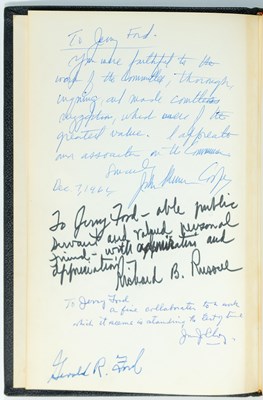 To Jerry Ford -
You were faithful to the
work of the Committee, thorough,
and made countless
which were of the
greatest value. I appreciate
our association on the Commission
Sincerely
Dec 7, 1964 John Sherman Cooper
To Jerry Ford - able public
servant and valued personal
friend - with admiration and
appreciation -
Richard B. Russell
To Jerry Ford
a fine collaborator to a work
which it seems is standing the test of time
Gerald R. Ford